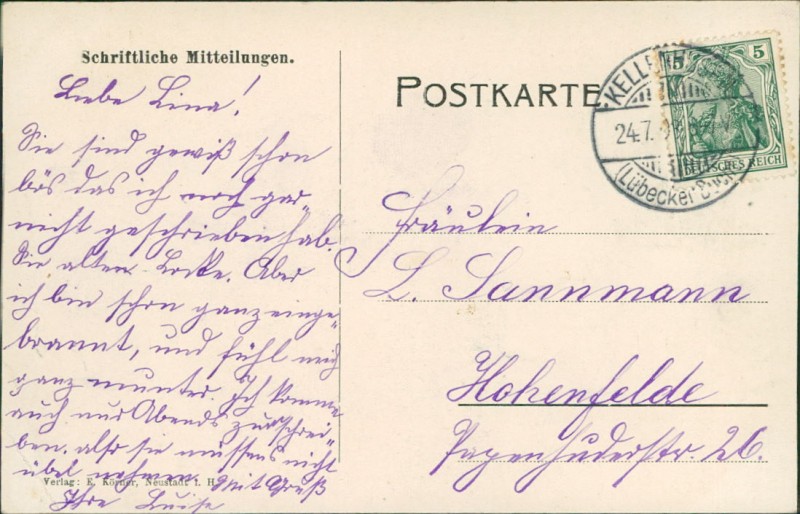 Schriftliche Mitteilungen.
Liebe Lina!
Sie sind gewiß schon
bös das ich noch gar
nicht geschrieben hab.
Sie alten Locke. Aber
ich bin schon ganz einge-
brannt, und fühl mich
ganz munter. Ich komme
auch nur Abends zu schrei-
ben. also sie müssens nicht
übel nehmen. Mit Gruß
Ihre Luise
Verlag: E. Körner, Neustadt i. H.
POSTKARTE
5 5
DEUTSCHES REICH
24.7.
(Lübecker
Fräulein
L. Sannmann
Hohenfelde
Papenhuderstr. 26.